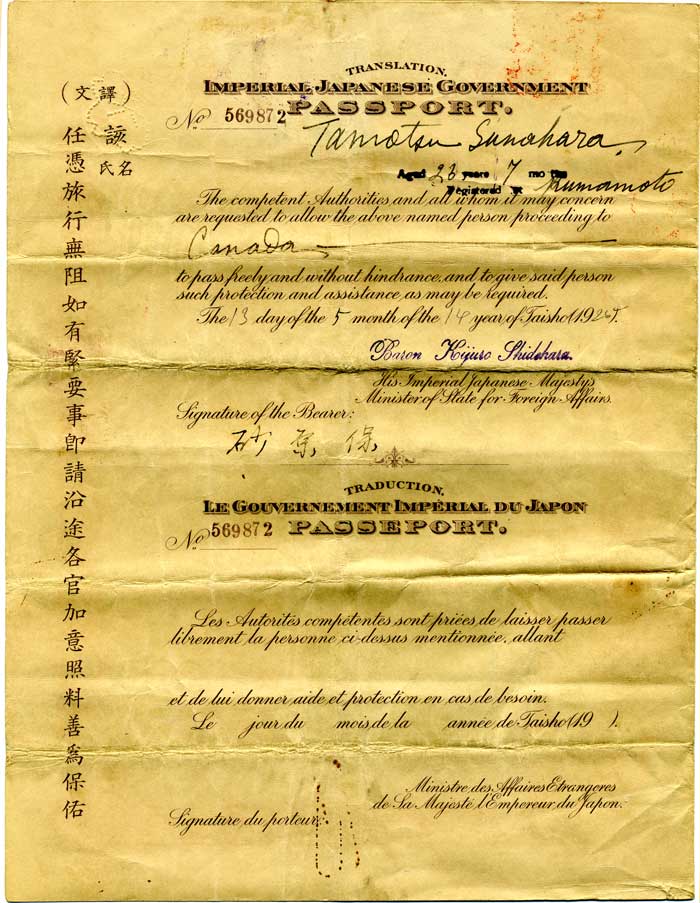 （譯文）
該
氏名
任憑旅行無阻如有緊要事卽請沿途各官加意照料善爲保佑
TRANSLATION.
IMPERIAL JAPANESE GOVERNMENT
PASSPORT.
No 569872
Tamotsu Sunahara,
Aged 23 years 7 months
Registered at Kumamoto
The competent Authorities and all whom it may concern
are requested to allow the above named person proceeding to
Canada
to pass freely and without hindrance, and to give said person
such protection and assistance, as may be required.
The 13 day of the 5 month of the 14 year of Taisho (192
Baron Kijuro Shidehara
His Imperial Japanese Majesty's
Minister of State for Foreign Affairs.
Signature of the Bearer:
砂原保
TRADUCTION.
LE GOUVERNEMENT IMPÉRIAL DU JAPON
PASSEPORT.
No 569872
Les Autorités compétentes sont priées de laisser passer
librement la personne ci-dessus mentionnée, allant
et de lui donner aide et protection en cas de besoin.
Le jour du mois de la année de Taisho (19 ).
Ministre des Affaires Etrangeres
de Sa Majesté l'Empereur du Japon.
Signature du porteur: